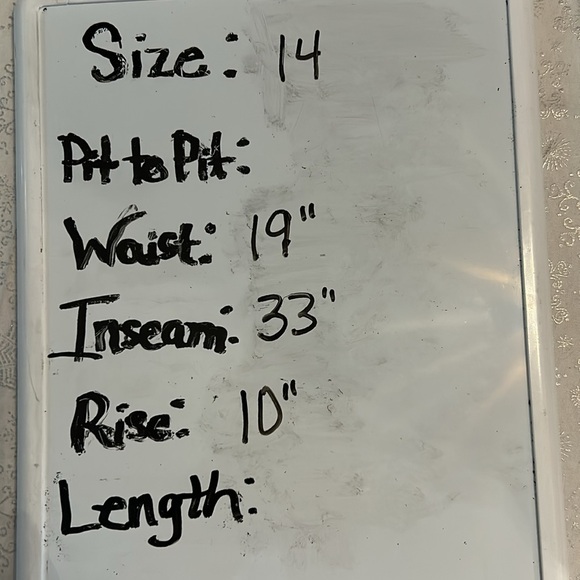 Size: 14
Pit to Pit:
Waist: 19"
Inseam: 33"
Rise: 10"
Length: